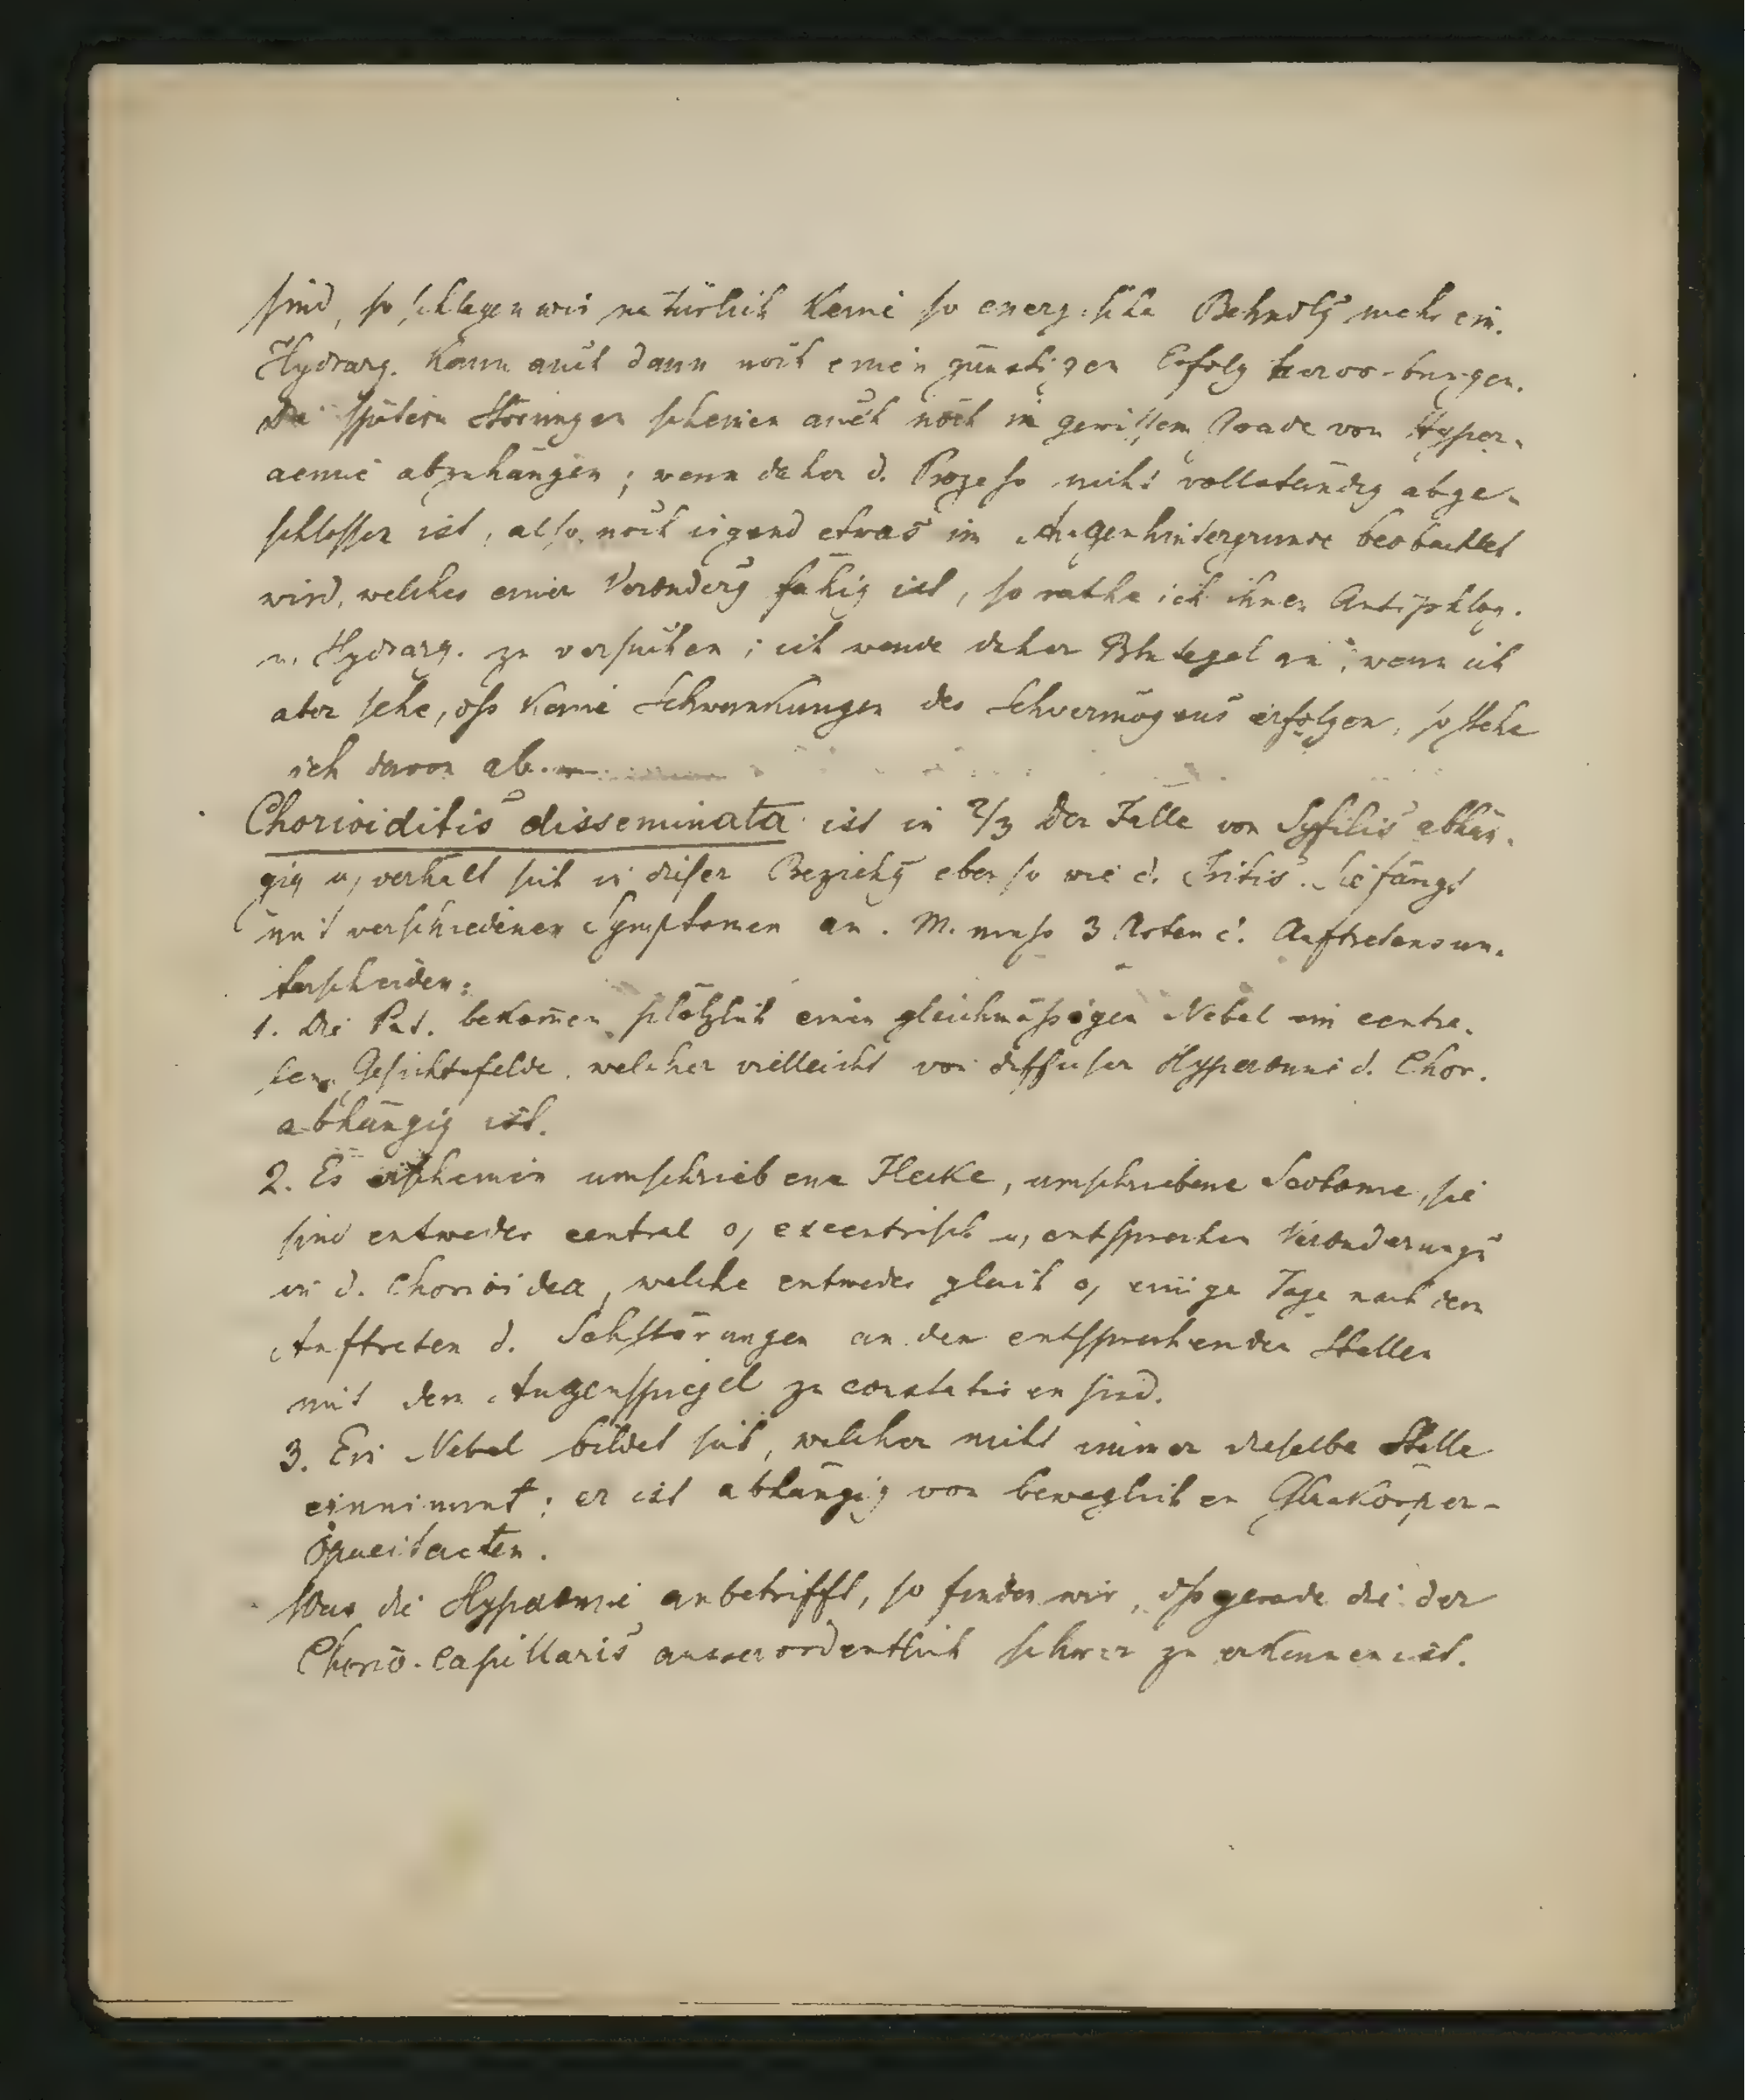 sind, so schlagen wir natürlich keine so energische Behndlg mehr ein.
Hydrarg. kann auch dann noch einen günstigen Erfolg hervor-bringen.
Die spätern Störungen scheinen auch noch in gewissem Grade von Hyper-
aemie abzuhängen; wenn daher d. Prozess nicht vollständig abge-
schlossen ist, also noch irgend etwas im Augenhintergrunde beobachtet
wird, welches einer Veränderg fähig ist, so rathe ich ihnen Antiphlog.
u. Hydrarg. zu versuchen; ich wende daher Blutegel an; wenn ich
aber sehe, dss keine Schwankungen des Sehvermögens erfolgen, so stehe
ich davon ab.
Chorioiditis disseminata ist in 2/3 der Fälle von Syfilis abhän-
gig u, verhält sich in dieser Beziehg ebenso wie d. Iritis. Sie fängt
mit verschiedenen Symptomen an. M. muss 3 Arten d. Auftretens un-
terscheiden:
1. Die Pat. bekom̄en plötzlich einen gleichmässigen Nebel im centra-
len Gesichtsfelde, welcher vielleicht von diffuser Hyperämie d. Chor.
abhängig ist.
2. Es erscheinen umschriebene Flecke, umschriebene Scotome, sie
sind entweder central o, excentrisch u, entsprechen Veränderungn
in d. Chorioidea, welche entweder gleich o, einige Tage nach dem
Auftreten d. Sehstörungen an den entsprechenden Stellen
mit dem Augenspiegel zu constatiren sind.
3. Ein Nebel bildet sich, welcher nicht immer dieselbe Stelle
einnimmt; er ist abhängig von beweglichen Glaskörper-
opacitaeten.
Was die Hyperämie anbetrifft, so finden wir, dss gerade die der
Chorio-capillaris ausserordentlich schwer zu erkennen ist.